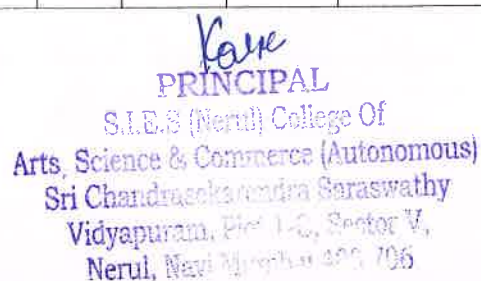 PRINCIPAL
S.I.E.S (Nerul) College Of
Arts, Science & Commerce (Autonomous)
Sri Chandrasekarendra Saraswathy
Vidyapuram, Plot 1-C, Sector V,
Nerul, Navi Mumbai 400 706